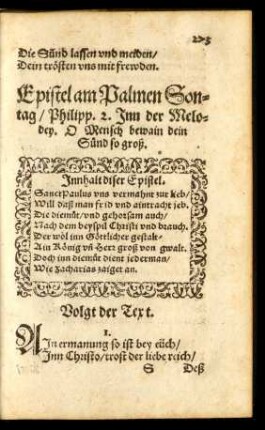 Die Sünd lassen vnd meiden/
Dein trösten vns mit frewden.
Epistel am Palmen Son-
tag/ Philipp. 2. Inn der Melo-
dey. O Mensch bewain dein
Sünd so groß.
Innhalt diser Epistel.
Sanct Paulus vns vermahnt zur lieb/
Will daß man frid vnd aintracht ieb.
Die diemüt/ vnd gehorsam auch/
Nach dem beyspil Christi vnd brauch.
Der wol inn Göttlicher gestalt/
Ain König vñ Herr groß von gwalt.
Doch inn diemüt dient jederman/
Wie Zacharias zaiget an.
Volgt der Text.
1.
AIn ermanung so ist bey eüch/
Inn Christo/ trost der liebe reich/
S Deß